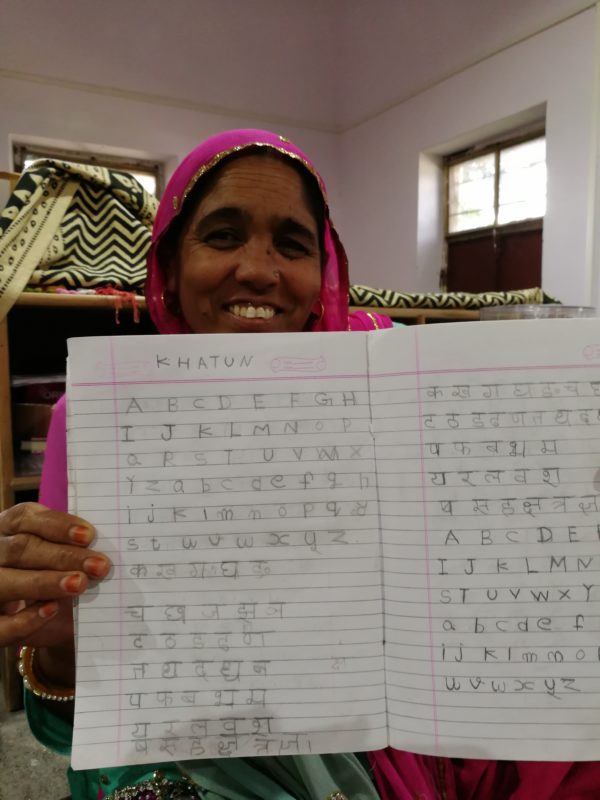 KHATUN
A B C D E F G H
I J K L M N O P
Q R S T U V W X
Y Z a b c d e f g h
i j k l m n o p q r
s t u v w x y z.
क ख ग घ ङ
च छ ज झ ञ
ट ठ ड ढ ण
त थ द ध न
प फ ब भ म
य र ल व श
ष स ह क्ष त्र ज्ञ।
क ख ग घ ङ च छ
ट ठ ड ढ ण त थ द
प फ ब भ म
य र ल व श
ष स ह क्ष त्र ज्ञ
A B C D E F
I J K L M N
S T U V W X Y
a b c d e f
i j k l m n o
u v w x y z